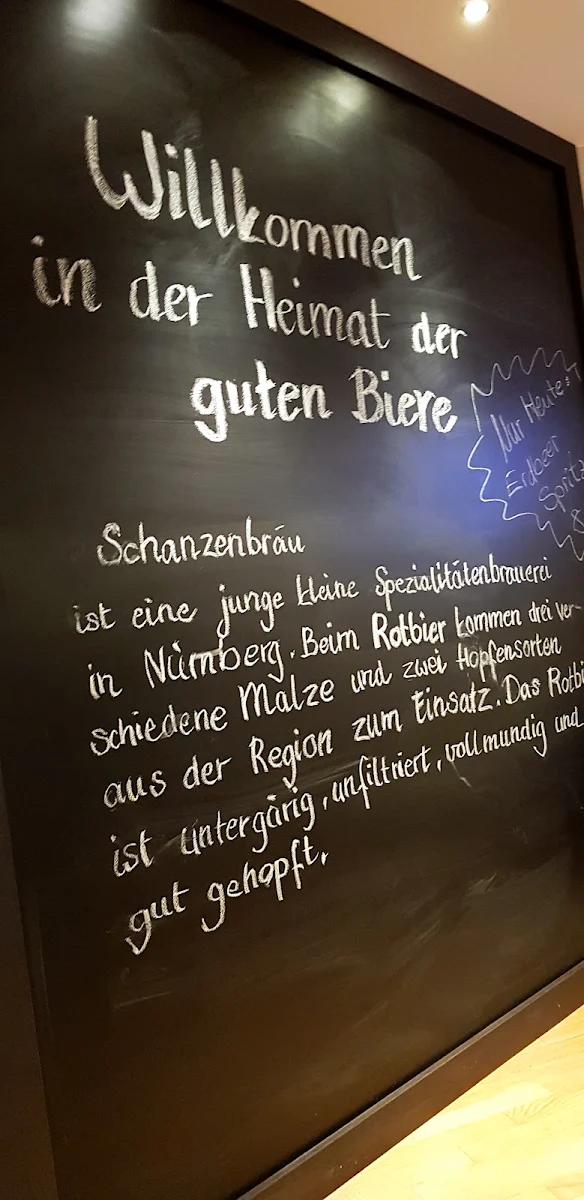 Willkommen
in der Heimat der
guten Biere
Nur Heute:
Erdbeer
Schanzenbräu
ist eine junge kleine Spezialitätenbrauerei
in Nürnberg. Beim Rotbier kommen drei ver-
schiedene Malze und zwei Hopfensorten
aus der Region zum Einsatz. Das Rotbi
ist untergärig, unfiltriert, vollmundig und
gut gehopft.